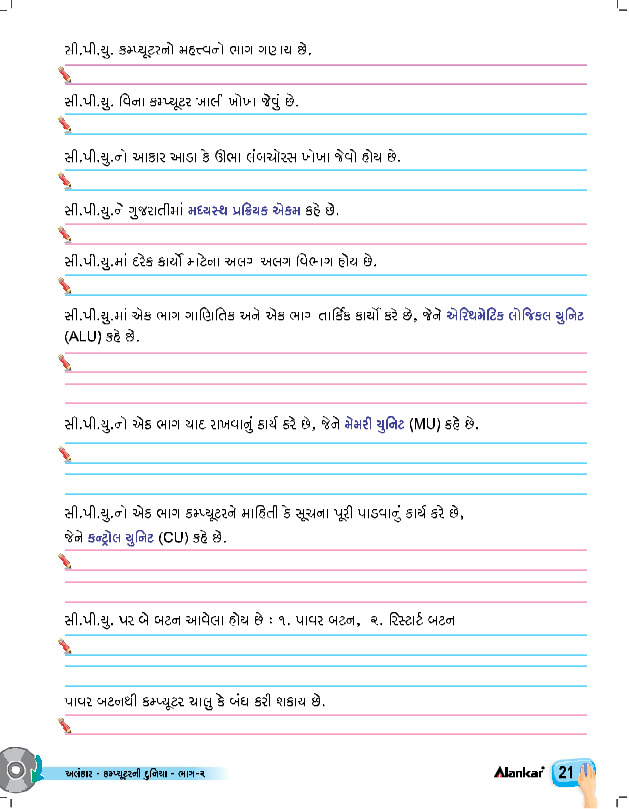 સી.પી.યુ. કમ્પ્યૂટરનો મહત્ત્વનો ભાગ ગણાય છે.
સી.પી.યુ. વિના કમ્પ્યૂટર ખાલી ખોખા જેવું છે.
સી.પી.યુ.નો આકાર આડા કે ઊભા લંબચોરસ ખોખા જેવો હોય છે.
સી.પી.યુ.ને ગુજરાતીમાં મધ્યસ્થ પ્રક્રિયક એકમ કહે છે.
સી.પી.યુ.માં દરેક કાર્યો માટેના અલગ અલગ વિભાગ હોય છે.
સી.પી.યુ.માં એક ભાગ ગાણિતિક અને એક ભાગ તાર્કિક કાર્યો કરે છે, જેને એરિથમેટિક લોજિકલ યુનિટ
(ALU) કહે છે.
સી.પી.યુ.નો એક ભાગ યાદ રાખવાનું કાર્ય કરે છે, જેને મેમરી યુનિટ (MU) કહે છે.
સી.પી.યુ.નો એક ભાગ કમ્પ્યૂટરને માહિતી કે સૂચના પૂરી પાડવાનું કાર્ય કરે છે,
જેને કન્ટ્રોલ યુનિટ (CU) કહે છે.
સી.પી.યુ. પર બે બટન આવેલા હોય છે : ૧. પાવર બટન, ૨. રિસ્ટાર્ટ બટન
પાવર બટનથી કમ્પ્યૂટર ચાલુ કે બંધ કરી શકાય છે.
અલંકાર - કમ્પ્યૂટરની દુનિયા - ભાગ-૨
Alankar 21